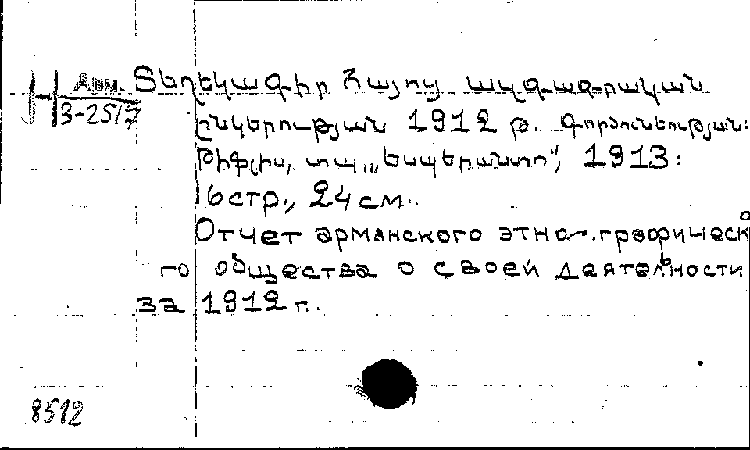 Арм. Տեղեկագիր Հայոց ազգագրական
Н 3-2517 ընկերության 1912 թ. գործունեության:
Թիֆլիս, տպ. „Էսպերանտո", 1913:
16 стр., 24 см.
Отчет армянского этнографического
общества о своей деятельности
за 1912 г.
8512